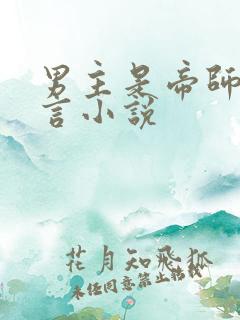 男主是帝師
言小說
花月知飛狐
未经同意禁止转载